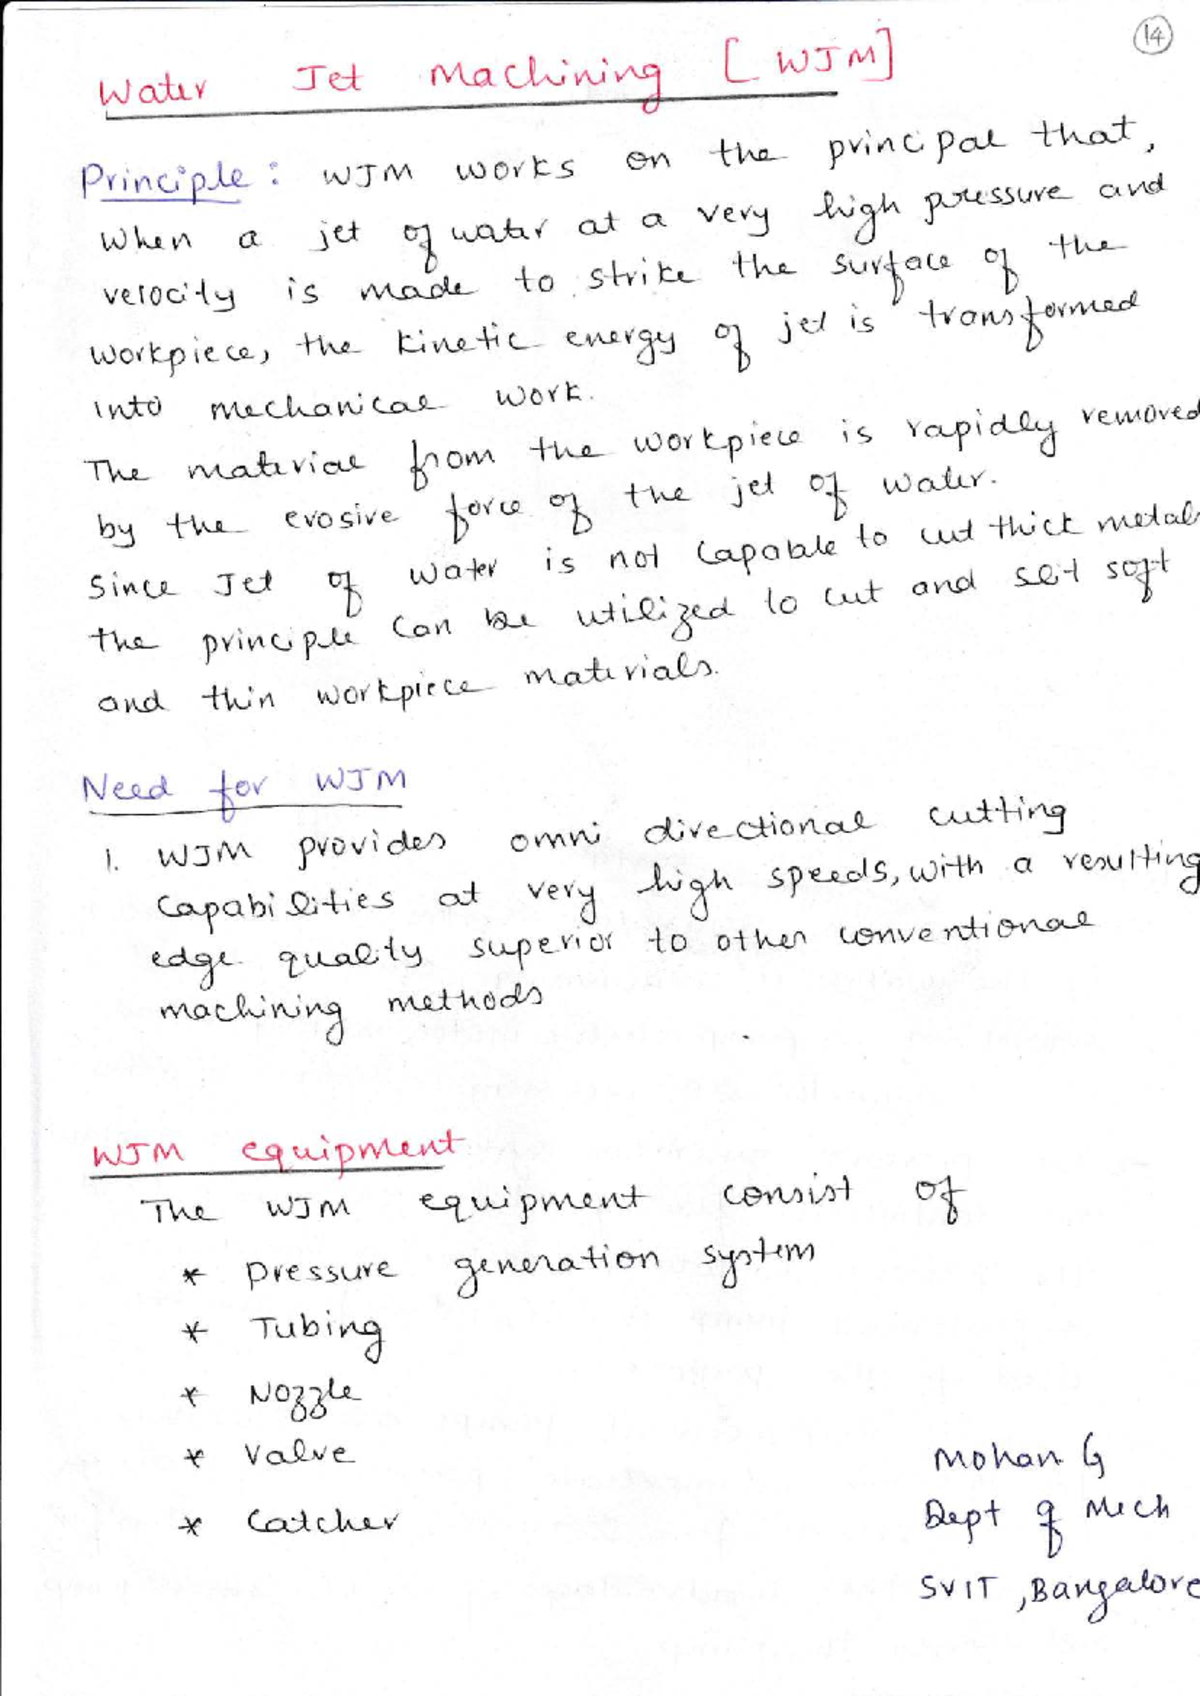 14
Water Jet Machining [WJM]
Principle: WJM works on the principal that,
When a jet of water at a very high pressure and
velocity is made to strike the surface of the
workpiece, the kinetic energy of jet is transformed
into mechanical work.
The material from the workpiece is rapidly removed
by the erosive force of the jet of water.
Since Jet of water is not capable to cut thick metal
the principle can be utilized to cut and slit soft
and thin workpiece materials.
Need for WJM
1. WJM provides omni directional cutting
capabilities at very high speeds, with a resulting
edge quality superior to other conventional
machining methods
WJM equipment
The WJM equipment consist of
* Pressure generation system
* Tubing
* Nozzle
* Valve
* Catcher
Mohan G
Dept of Mech
SVIT, Bangalore